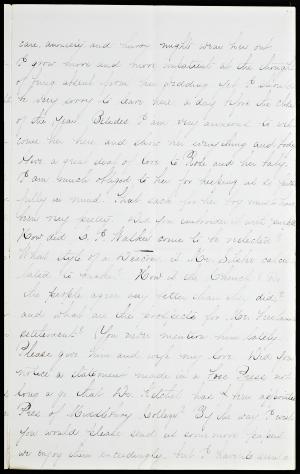 care, anxiety and
I grow more and more impatient at the thought
of being absent from her wedding yet I should
be very sorry to leave here a day before the close
of the year. Besides I am very anxious to wel-
come her here and show her everything and body
Give a great deal of love to and her baby
I am much obliged to her for keeping me so
fully in mind. That sack for her boy must have
been very pretty. Did you embroider it
How did S. F. Walker come to be
What sort of a Deacon is Mr. calcu-
lated to make? How is the Church? Do
the people agree any better than they did?
and what are the prospects for Mr.
settlement? You never mention him lately.
Please give him and wife my love. Did you
notice a statement made in a Free Press not
long ago that Dr. Kitchel had been appointed
Pres of Middlebury College? By the way I wish
you would please send us some more papers
we enjoy them exceedingly, but I